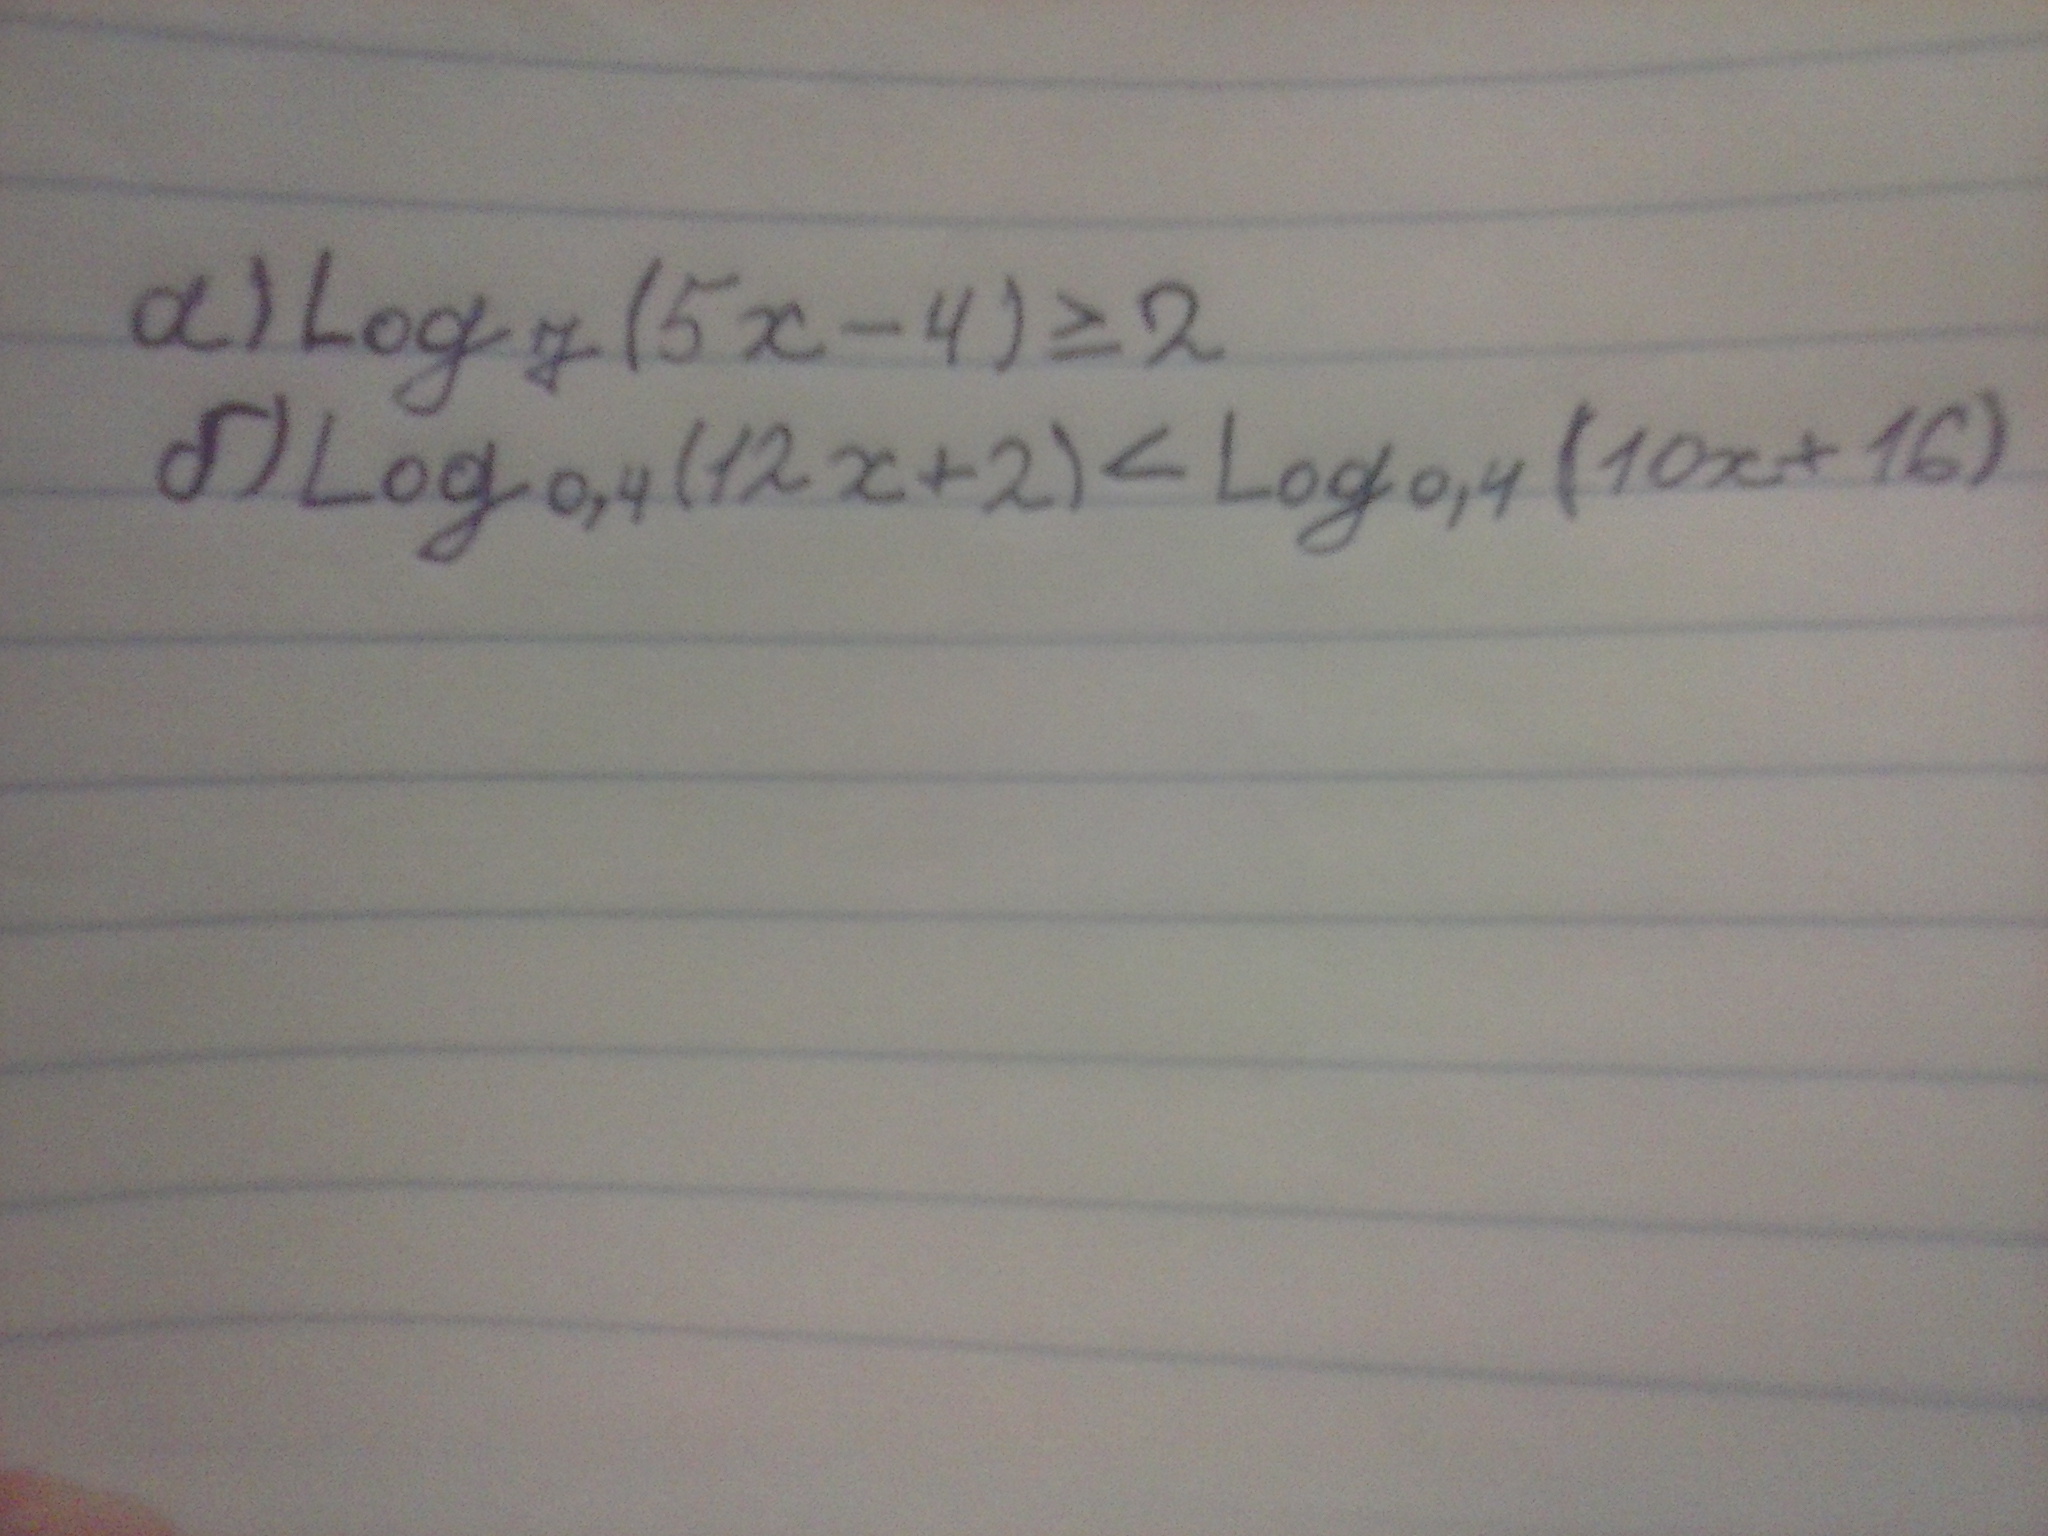 а) Log₇(5x-4)≥2
б) Log₀,₄(12x+2)<Log₀,₄(10x+16)